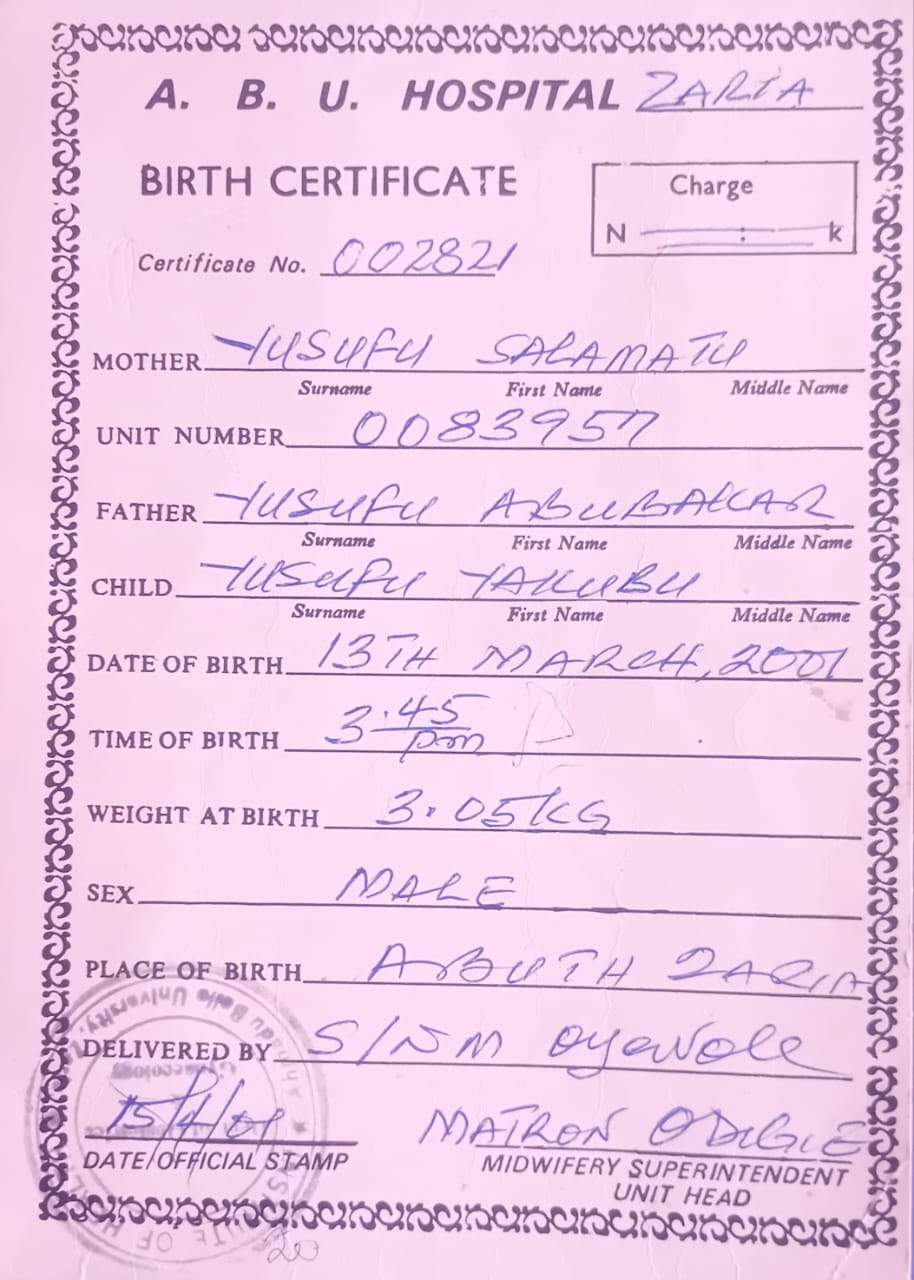 A. B. U. HOSPITAL ZARIA
BIRTH CERTIFICATE
Charge
N : k
Certificate No. 002821
MOTHER YUSUFU SALAMATU
Surname First Name Middle Name
UNIT NUMBER 0083957
FATHER YUSUFU ABUBAKAR
Surname First Name Middle Name
CHILD YUSUFU YAKUBU
Surname First Name Middle Name
DATE OF BIRTH 13TH MARCH, 2001
TIME OF BIRTH 3.45 pm
WEIGHT AT BIRTH 3.05KG
SEX MALE
PLACE OF BIRTH ABUTH ZARIA
DELIVERED BY S/NM Oyewole
15/4/01 MATRON ODIGIE
DATE/OFFICIAL STAMP MIDWIFERY SUPERINTENDENT
UNIT HEAD